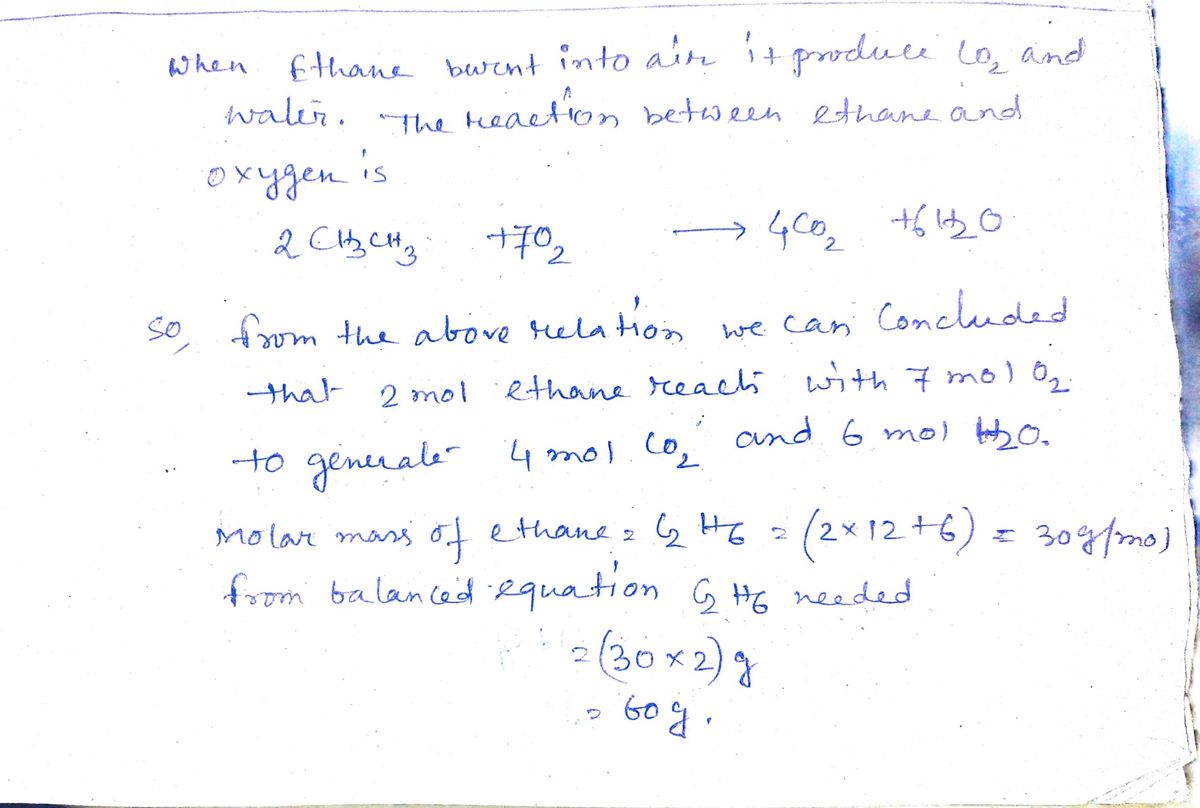 When Ethane burnt into air it produce CO₂ and
water. The reaction between ethane and
oxygen is
2 CH₃CH₃ +7O₂ ⟶ 4CO₂ +6H₂O
so, from the above relation we can Concluded
that 2 mol ethane reacts with 7 mol O₂
to generate 4 mol CO₂ and 6 mol H₂O.
Molar mass of ethane = C₂H₆ = (2×12+6) = 30g/mol
from balanced equation C₂H₆ needed
=(30×2) g
= 60 g.